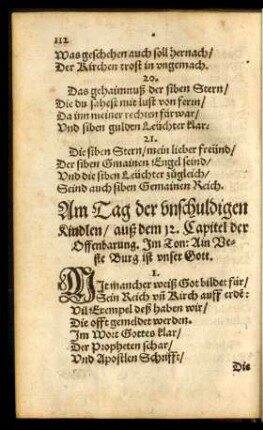 112
Was geschehen auch soll hernach/
Der Kirchen trost in vngemach.
20.
Das gehaimnuß der siben Stern/
Die du sahest mit lust von fern/
Da inn meiner rechten fürwar/
Vnd siben gulden Leüchter klar.
21.
Die siben Stern/ mein lieber freünd/
Der siben Gmainen Engel seind/
Vnd die siben Leüchter zügleich/
Seind auch siben Gemainen Reich.
Am Tag der vnschuldigen
Kindlen/ auß dem 12. Capitel der
Offenbarung. Im Ton: Ain Ve-
ste Burg ist vnser Gott.
1.
MIt mancher weiß Got bildet für/
Sein Reich vñ Kirch auff erd:
Vil Exempel deß haben wir/
Die offt gemeldet werden.
Im Wort Gottes klar/
Der Propheten schar/
Vnd Apostlen Schrifft/
Die